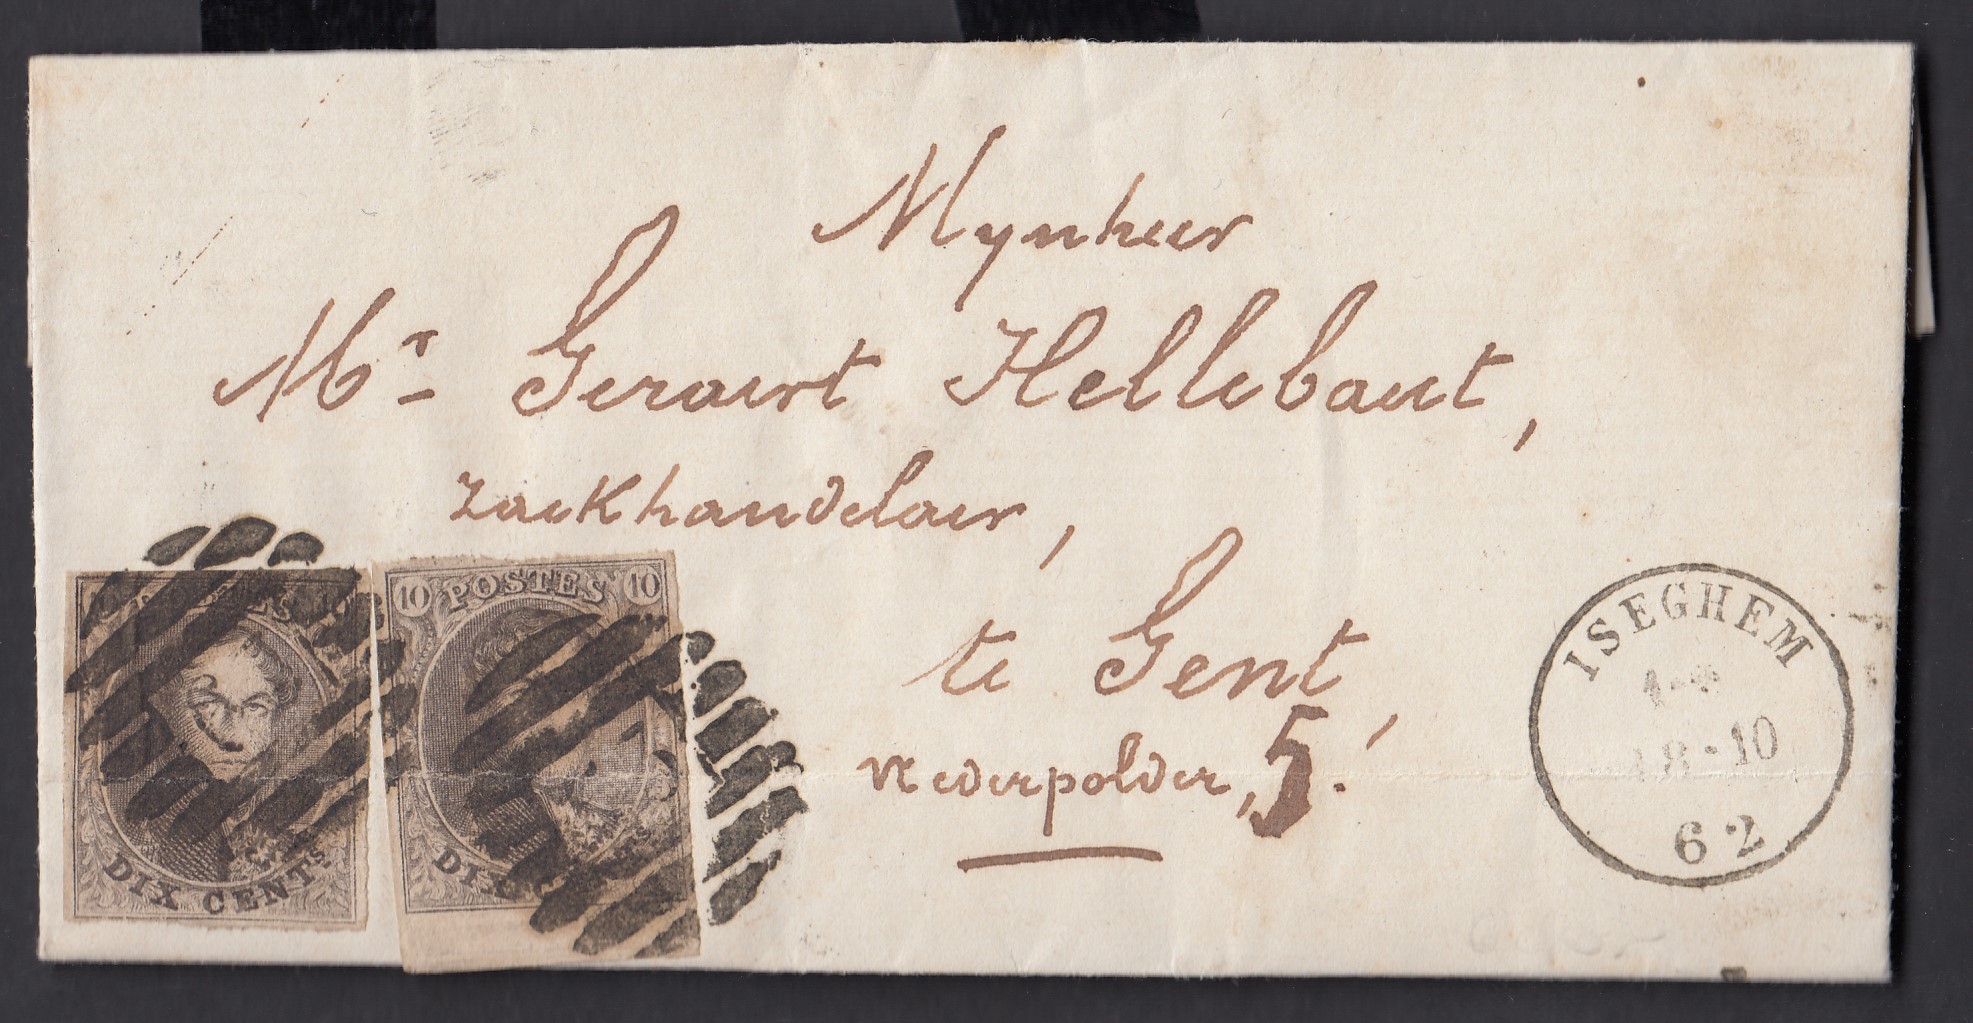 Mynheer
Mr Geraert Hellebaut,
zackhandelaer,
te Gent,
Nederpolder, 5.
10 POSTES 10
DIX CENTS
DIX
ISEGHEM
18-10
62